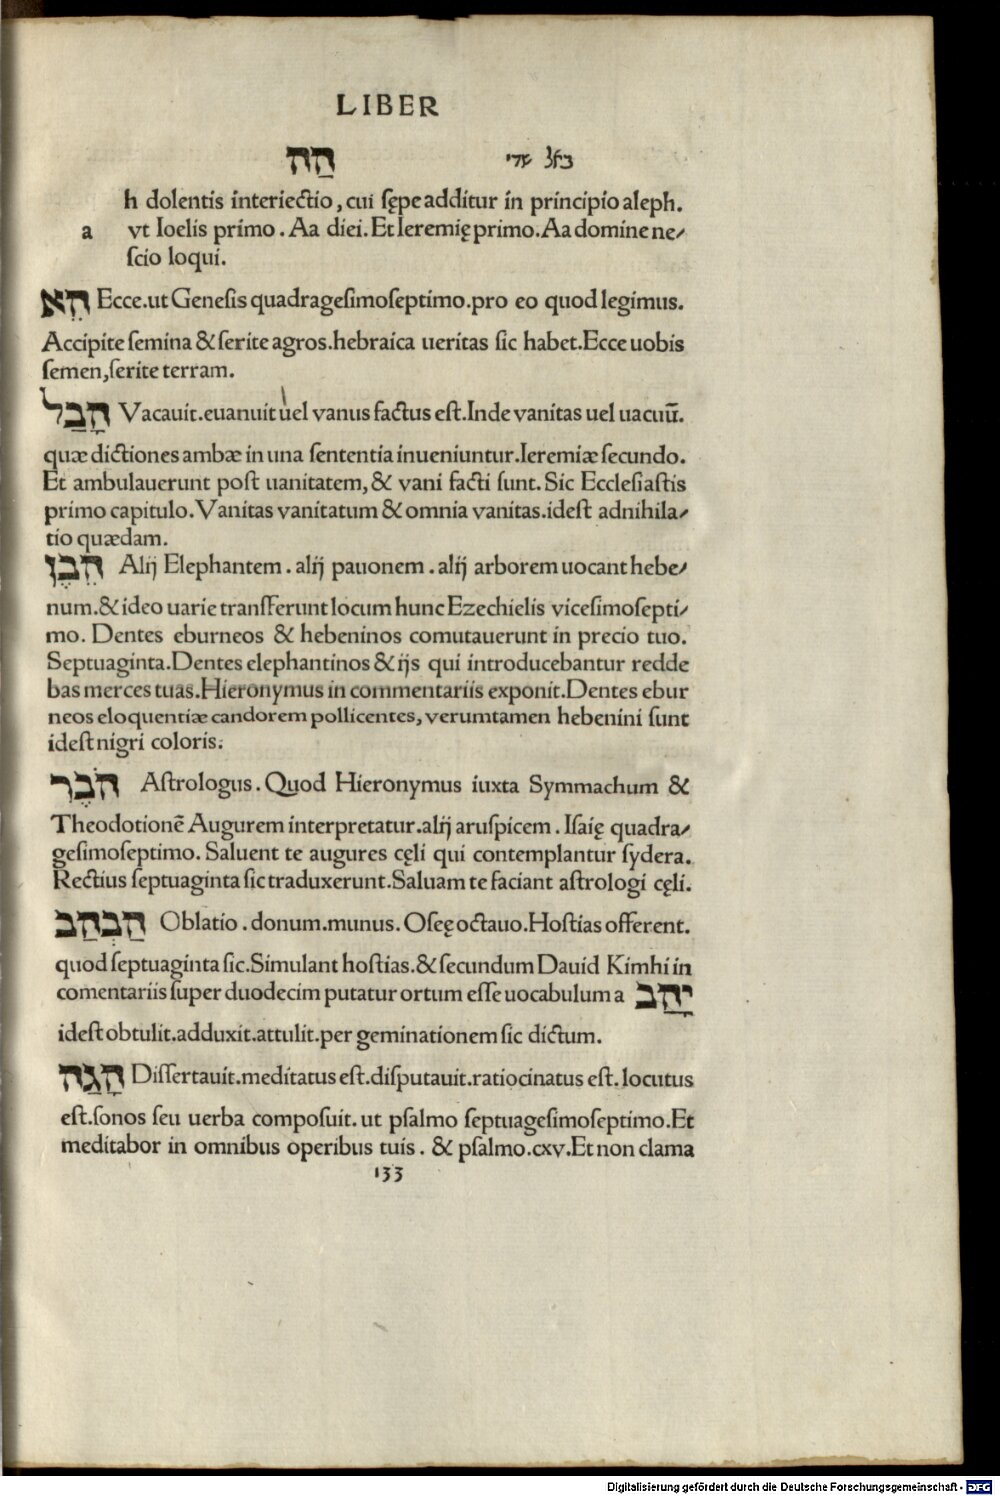 LIBER
הַה
h dolentis interiectio, cui sępe additur in principio aleph.
a vt Ioelis primo. Aa diei. Et Ieremię primo. Aa domine ne⸗
scio loqui.
הֵא Ecce. ut Genesis quadragesimoseptimo. pro eo quod legimus.
Accipite semina & serite agros. hebraica ueritas sic habet. Ecce uobis
semen, serite terram.
הָבַל Vacauit. euanuit uel vanus factus est. Inde vanitas uel uacuū.
quæ dictiones ambæ in una sententia inueniuntur. Ieremiæ secundo.
Et ambulauerunt post uanitatem, & vani facti sunt. Sic Ecclesiastis
primo capitulo. Vanitas vanitatum & omnia vanitas. idest adnihila⸗
tio quædam.
הֵבֶן Alij Elephantem. alij pauonem. alij arborem uocant hebe⸗
num. & ideo uarie transferunt locum hunc Ezechielis vicesimosepti⸗
mo. Dentes eburneos & hebeninos comutauerunt in precio tuo.
Septuaginta. Dentes elephantinos & ijs qui introducebantur redde
bas merces tuas. Hieronymus in commentariis exponit. Dentes ebur
neos eloquentiæ candorem pollicentes, verumtamen hebenini sunt
idest nigri coloris.
הֹבֶר Astrologus. Quod Hieronymus iuxta Symmachum &
Theodotionē Augurem interpretatur. alij aruspicem. Isaię quadra⸗
gesimoseptimo. Saluent te augures cęli qui contemplantur sydera.
Rectius septuaginta sic traduxerunt. Saluam te faciant astrologi cęli.
הַבְהַב Oblatio. donum. munus. Oseę octauo. Hostias offerent.
quod septuaginta sic. Simulant hostias. & secundum Dauid Kimhi in
comentariis super duodecim putatur ortum esse uocabulum a יָהַב
idest obtulit. adduxit. attulit. per geminationem sic dictum.
הָגַה Dissertauit. meditatus est. disputauit. ratiocinatus est. locutus
est. sonos seu uerba composuit. ut psalmo septuagesimoseptimo. Et
meditabor in omnibus operibus tuis. & psalmo. cxv. Et non clama
133
Digitalisierung gefördert durch die Deutsche Forschungsgemeinschaft - DFG